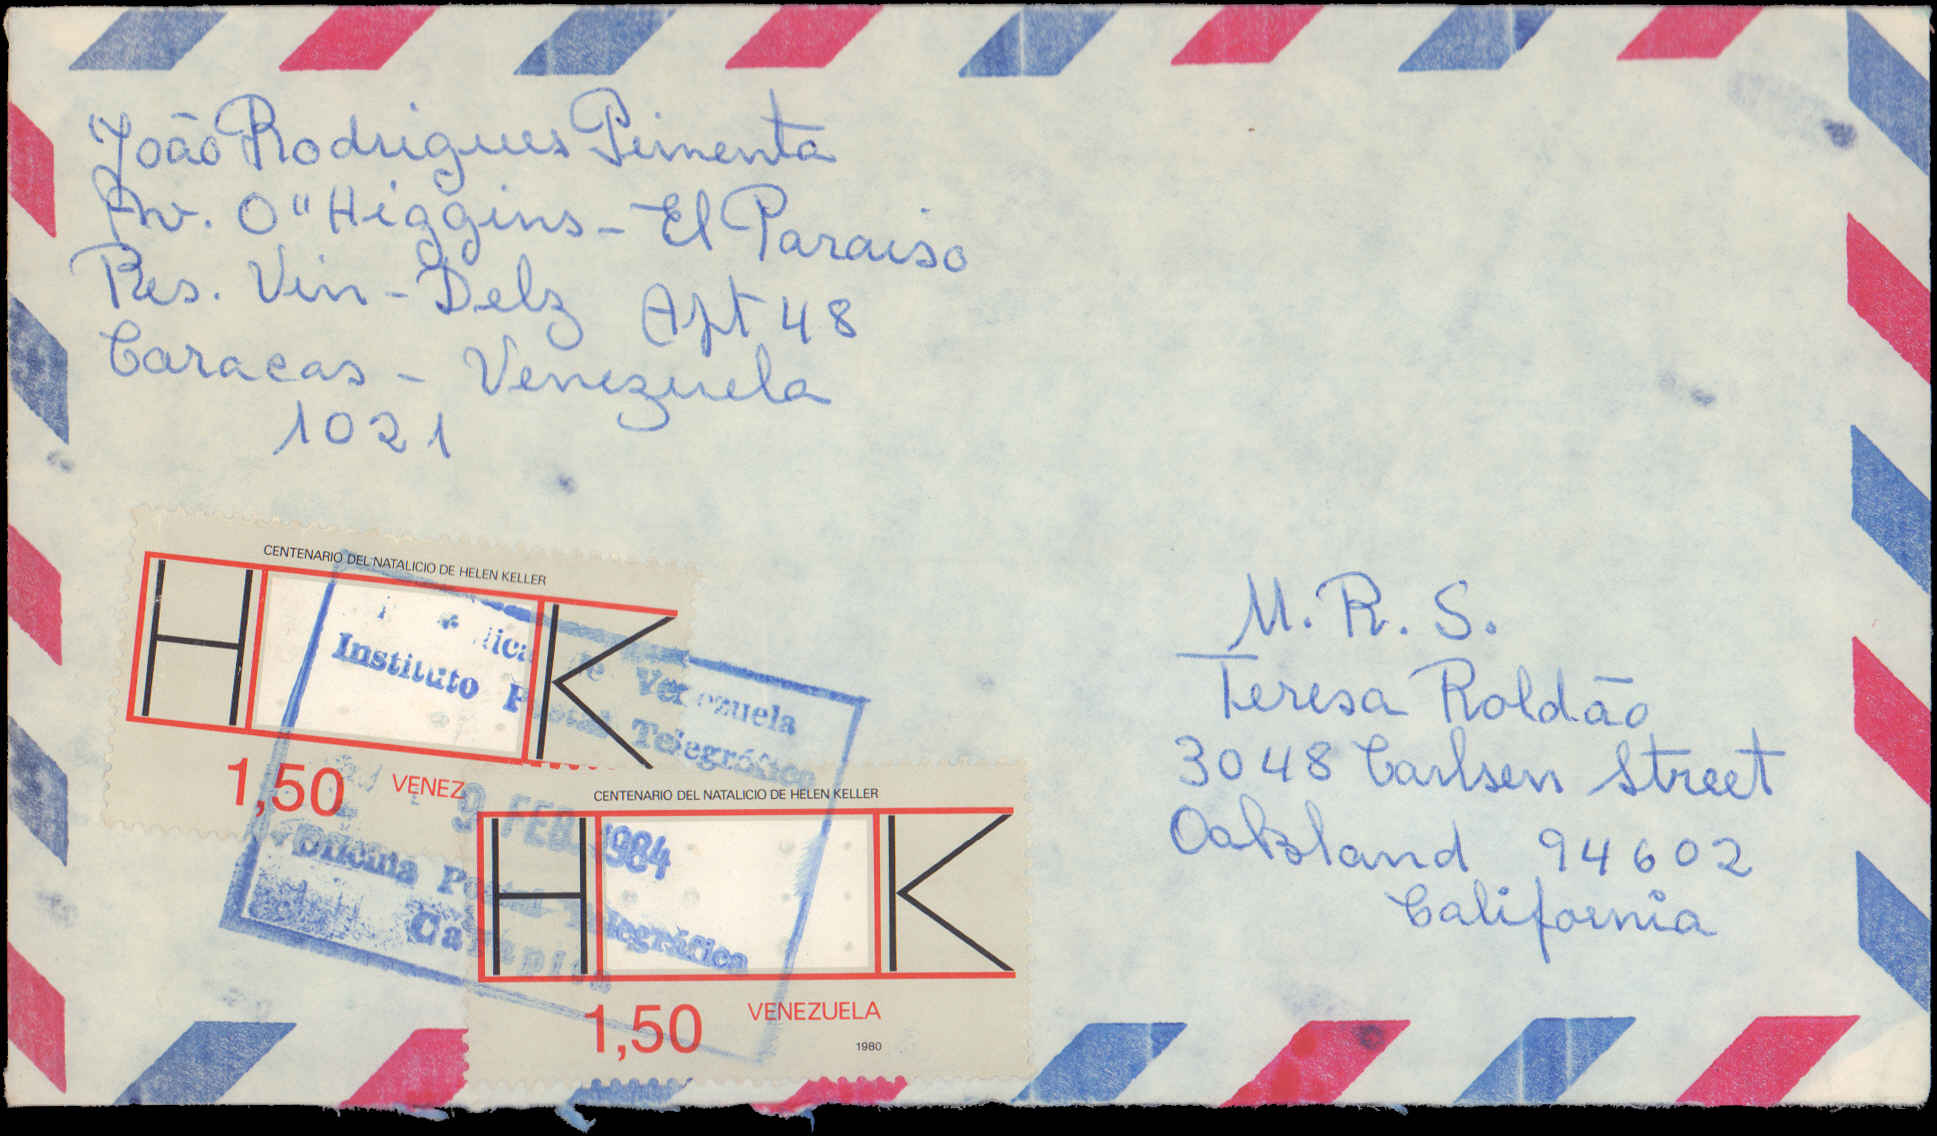 João Rodrigues Pimenta
Av. O"Higgins - El Paraiso
Res. Vin-Delz Apt 48
Caracas - Venezuela
1021
CENTENARIO DEL NATALICIO DE HELEN KELLER
H K
1,50 VENEZ
de Venezuela
Instituto Postal Telegráfico
9 FEB. 1984
Oficina Postal Telegráfica
CENTENARIO DEL NATALICIO DE HELEN KELLER
H K
1,50 VENEZUELA
1980
M.R.S.
Teresa Roldão
3048 Carlsen Street
Oakland 94602
California